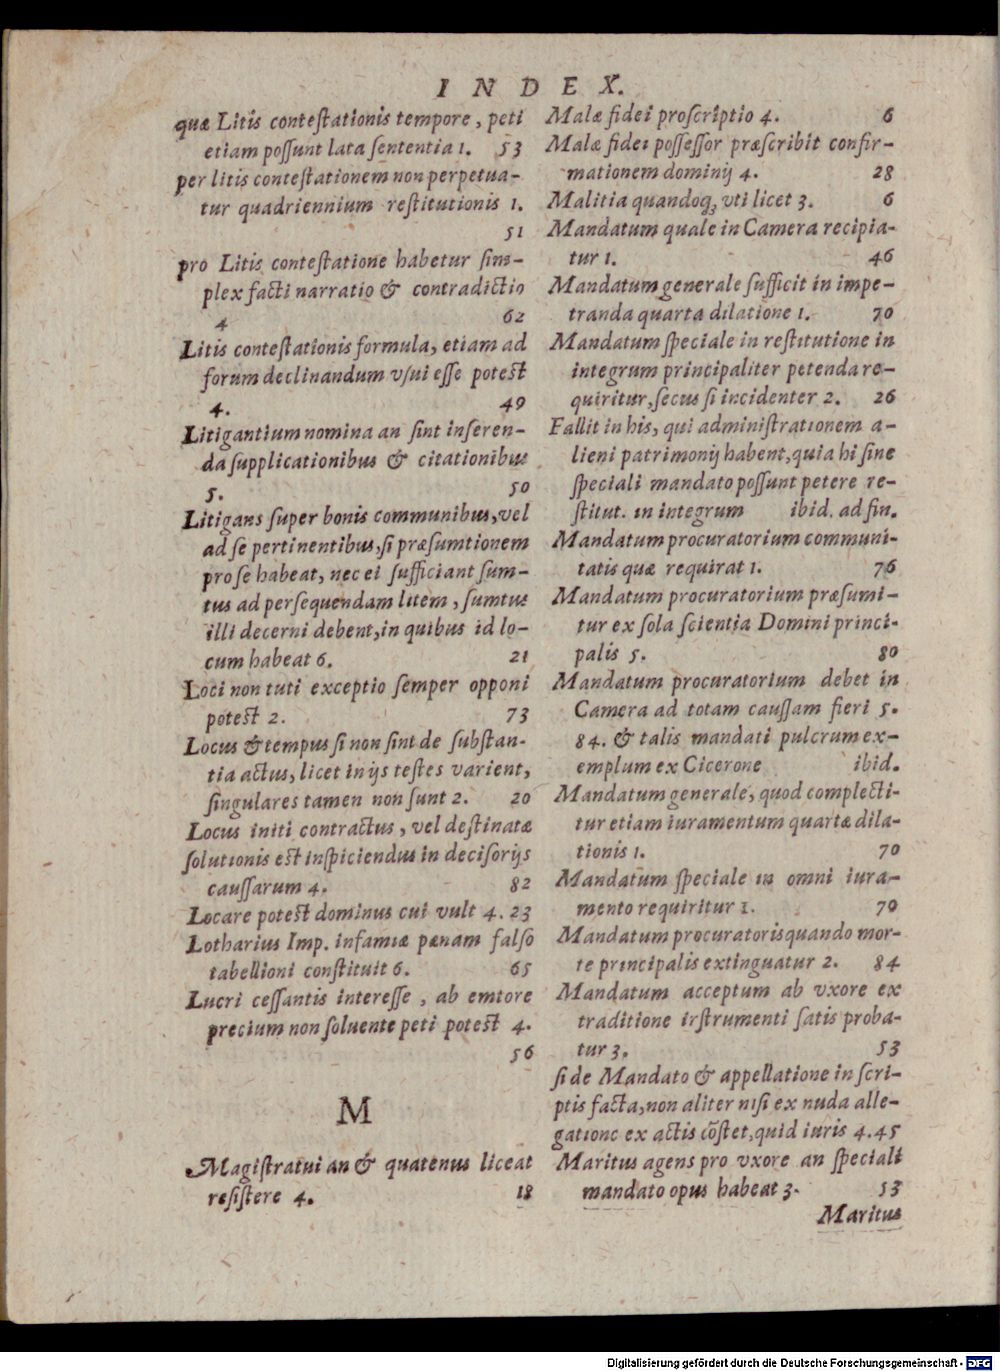 INDEX.
quæ Litis conteſtationis tempore, peti
etiam poſſunt lata ſententia 1. 53
per litis conteſtationem non perpetua-
tur quadriennium reſtitutionis 1.
51
pro Litis conteſtatione habetur ſim-
plex facti narratio & contradictio
4 62
Litis conteſtationis formula, etiam ad
forum declinandum vſui eſſe poteſt
4. 49
Litigantium nomina an ſint inſeren-
da ſupplicationibus & citationibus
5. 50
Litigans ſuper bonis communibus, vel
ad ſe pertinentibus, ſi præſumtionem
pro ſe habeat, nec ei ſufficiant ſum-
tus ad perſequendam litem, ſumtus
illi decerni debent, in quibus id lo-
cum habeat 6. 21
Loci non tuti exceptio ſemper opponi
poteſt 2. 73
Locus & tempus ſi non ſint de ſubſtan-
tia actus, licet in ijs teſtes varient,
ſingulares tamen non ſunt 2. 20
Locus initi contractus, vel deſtinatæ
ſolutionis eſt inſpiciendus in deciſorijs
cauſſarum 4. 82
Locare poteſt dominus cui vult 4. 23
Lotharius Imp. infamiæ pænam falſo
tabellioni conſtituit 6. 65
Lucri ceſſantis intereſſe, ab emtore
precium non ſoluente peti poteſt 4.
56
M
Magiſtratui an & quatenus liceat
reſiſtere 4. 18
Malæ fidei proſcriptio 4. 6
Malæ fidei poſſeſſor præſcribit confir-
mationem dominij 4. 28
Malitia quandoq₃ vti licet 3. 6
Mandatum quale in Camera recipia-
tur 1. 46
Mandatum generale ſufficit in impe-
tranda quarta dilatione 1. 70
Mandatum ſpeciale in reſtitutione in
integrum principaliter petenda re-
quiritur, ſecus ſi incidenter 2. 26
Fallit in his, qui adminiſtrationem a-
lieni patrimonij habent, quia hi ſine
ſpeciali mandato poſſunt petere re-
ſtitut. in integrum ibid. ad fin.
Mandatum procuratorium communi-
tatis quæ requirat 1. 76
Mandatum procuratorium præſumi-
tur ex ſola ſcientia Domini princi-
palis 5. 80
Mandatum procuratorium debet in
Camera ad totam cauſſam fieri 5.
84. & talis mandati pulcrum ex-
emplum ex Cicerone ibid.
Mandatum generale, quod complecti-
tur etiam iuramentum quartæ dila-
tionis 1. 70
Mandatum ſpeciale in omni iura-
mento requiritur 1. 70
Mandatum procuratoris quando mor-
te principalis extinguatur 2. 84
Mandatum acceptum ab vxore ex
traditione irſtrumenti ſatis proba-
tur 3. 53
ſi de Mandato & appellatione in ſcri-
ptis facta, non aliter niſi ex nuda alle-
gatione ex actis cõſtet, quid iuris 4. 45
Maritus agens pro vxore an ſpeciali
mandato opus habeat 3. 53
Maritus
Digitalisierung gefördert durch die Deutsche Forschungsgemeinschaft - DFG